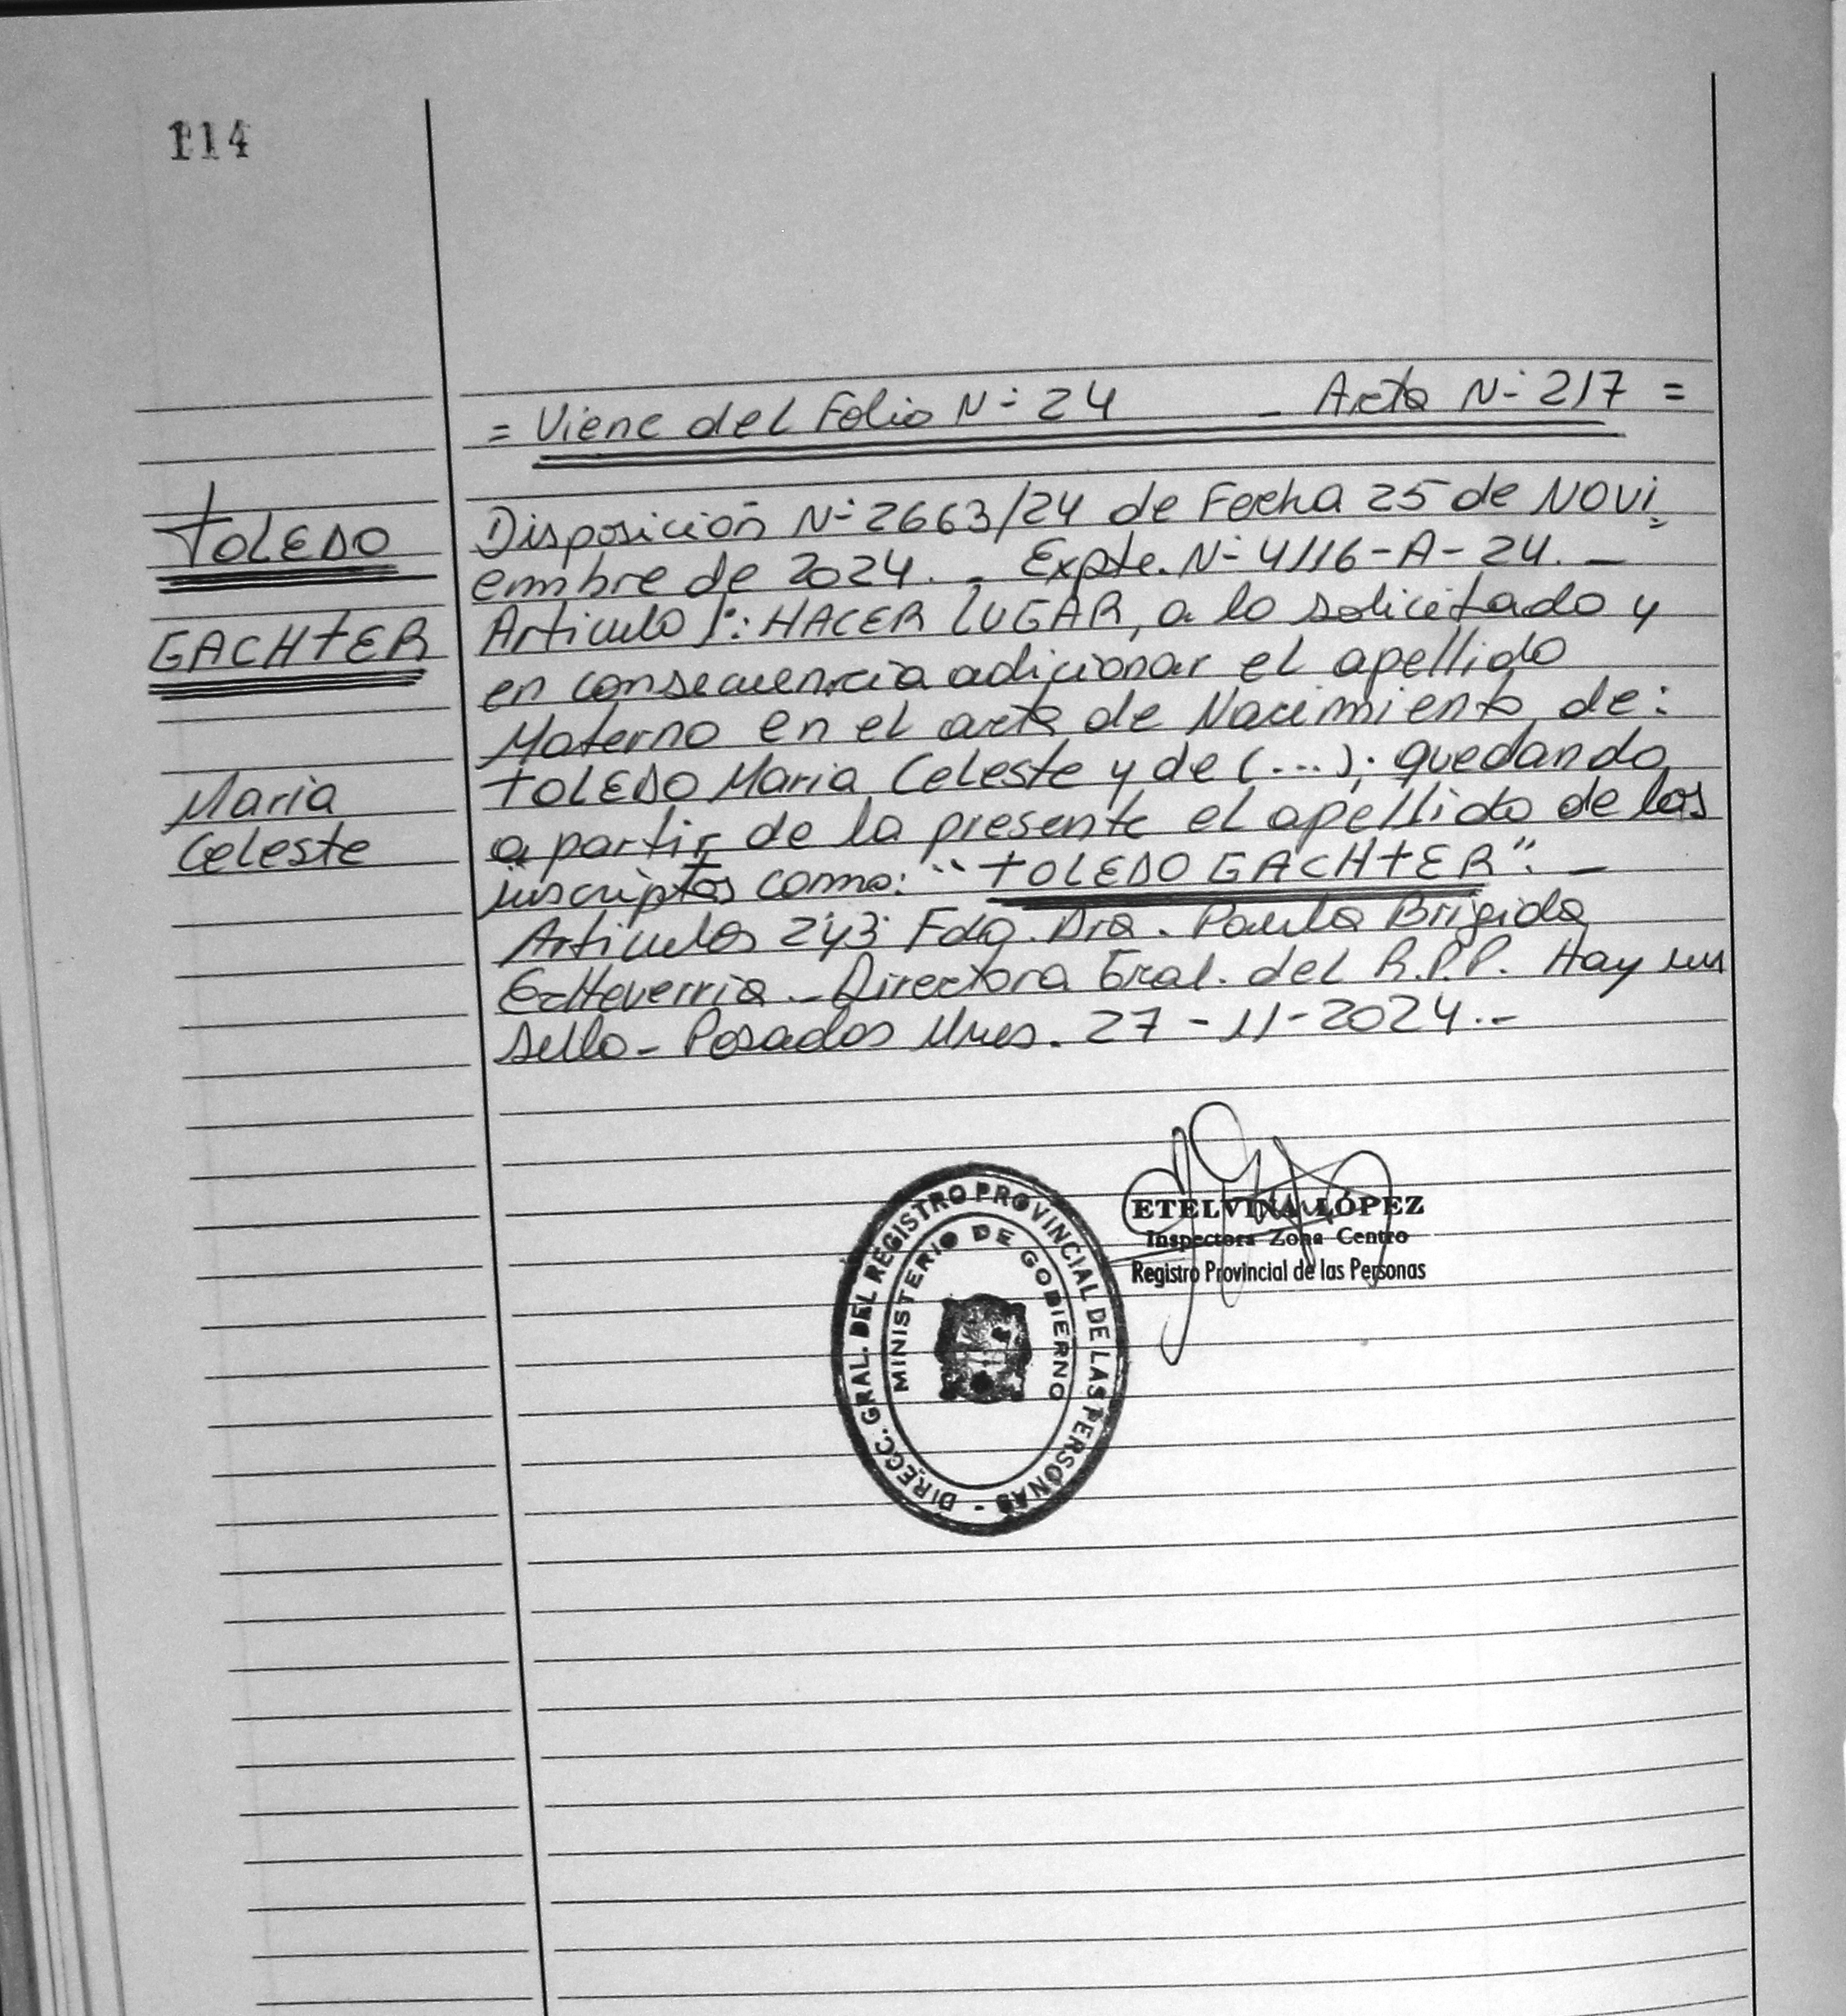 114
= Viene del Folio N- 24 - Acta N- 217 =
TOLEDO
GACHTER
Maria
Celeste
Disposición N- 2663/24 de Fecha 25 de Novi=
embre de 2024. - Expte. N- 4116-A-24. -
Articulo 1°: HACER LUGAR, a lo solicitado y
en consecuencia adicionar el apellido
Materno en el acta de Nacimiento de:
TOLEDO Maria Celeste y de (...); quedando
a partir de la presente el apellido de los
inscriptos como: "TOLEDO GACHTER". -
Articulos 2y3 Fdo. Dra. Paula Brigida
Etcheverria - Directora Gral. del R.P.P. Hay un
sello - Posadas Mnes. 27-11-2024.-
ETELVINA LÓPEZ
Inspectora Zona Centro
Registro Provincial de las Personas
DIRECC. GRAL. DEL REGISTRO PROVINCIAL DE LAS PERSONAS -
MINISTERIO DE GOBIERNO